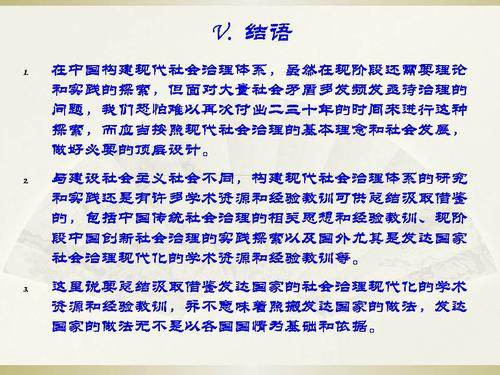 V. 结语
1. 在中国构建现代社会治理体系，虽然在现阶段还需要理论
和实践的探索，但面对大量社会矛盾多发频发亟待治理的
问题，我们恐怕难以再次付出二三十年的时间来进行这种
探索，而应当按照现代社会治理的基本理念和社会发展，
做好必要的顶层设计。
2. 与建设社会主义社会不同，构建现代社会治理体系的研究
和实践还是有许多学术资源和经验教训可供总结汲取借鉴
的，包括中国传统社会治理的相关思想和经验教训、现阶
段中国创新社会治理的实践探索以及国外尤其是发达国家
社会治理现代化的学术资源和经验教训等。
3. 这里说要总结汲取借鉴发达国家的社会治理现代化的学术
资源和经验教训，并不意味着照搬发达国家的做法，发达
国家的做法无不是以各国国情为基础和依据。